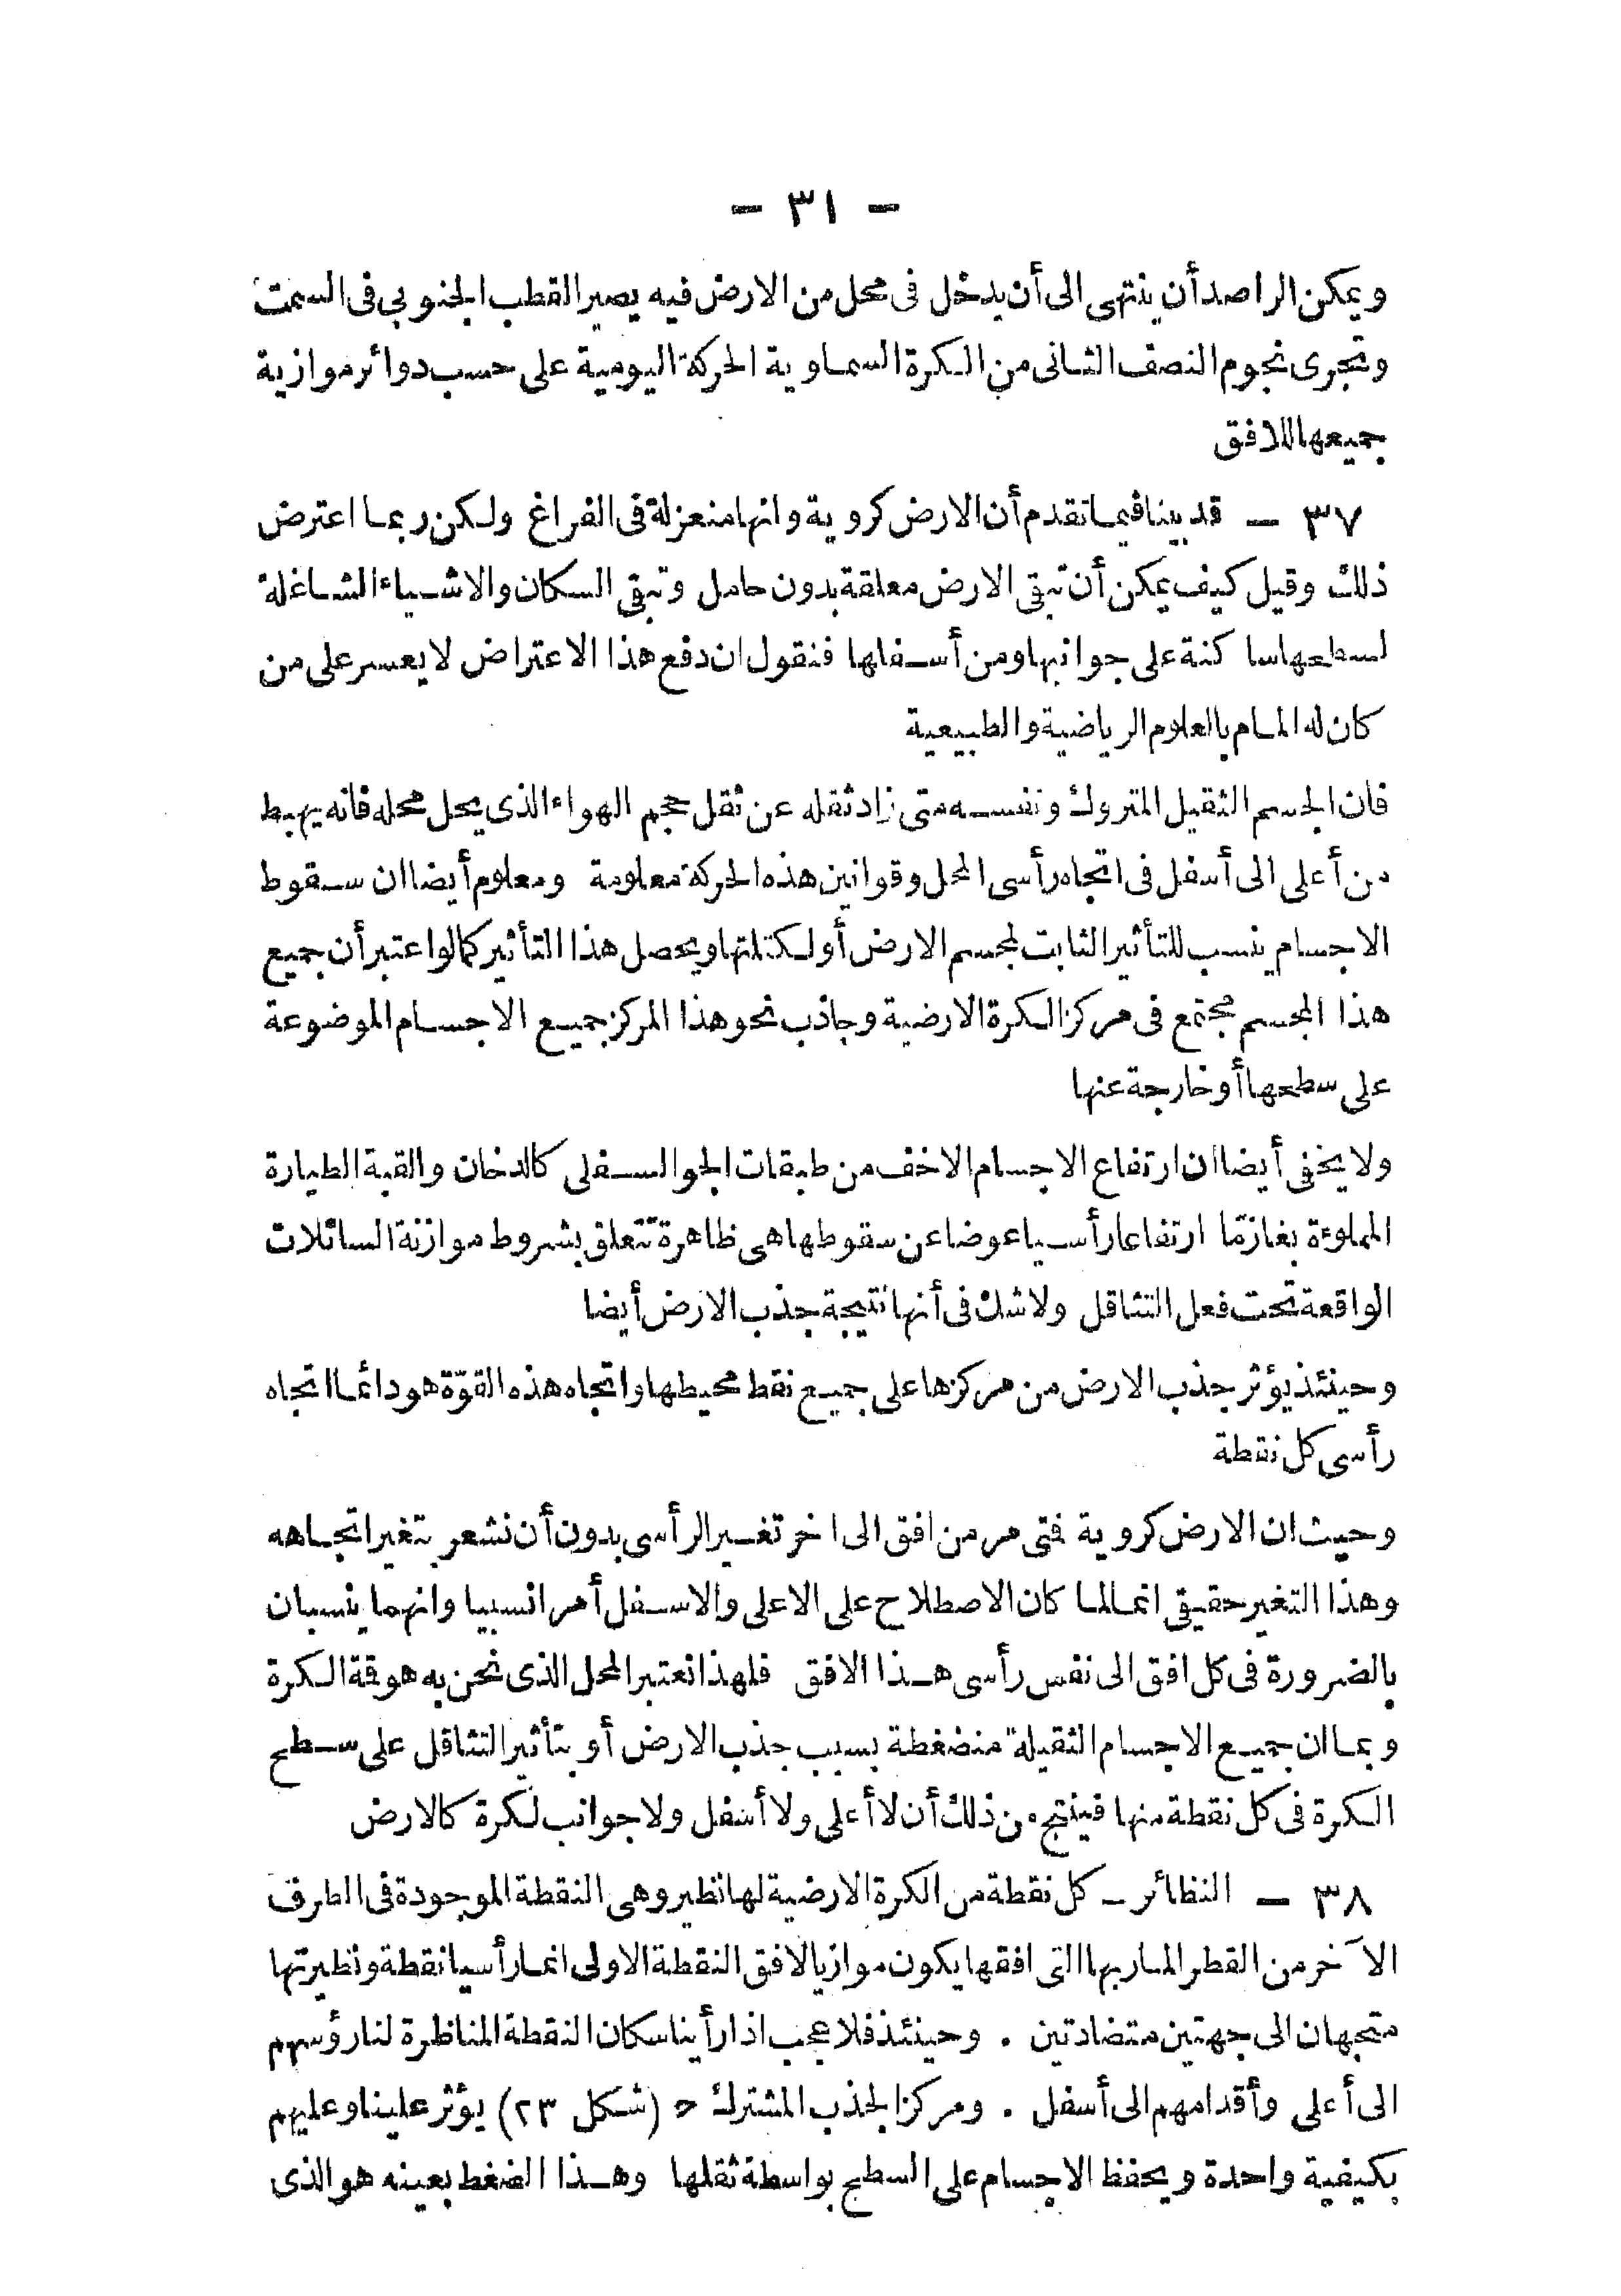 - ٣١ -
ويمكن الراصد أن ينتهى الى أن يدخل فى محل من الارض فيه يصير القطب الجنوبى فى السمت
وتجرى نجوم النصف الثانى من الكرة السماوية الحركة اليومية على حسب دوائر موازية
جميعها للافق
٣٧ - قد بينا فيما تقدم أن الارض كروية وانها منعزلة فى الفراغ ولكن ربما اعترض
ذلك وقيل كيف يمكن أن تبقى الارض معلقة بدون حامل وتبقى السكان والاشياء الشاغلة
لسطحها ساكنة على جوانبها ومن أسفلها فنقول ان دفع هذا الاعتراض لا يعسر على من
كان له المام بالعلوم الرياضية والطبيعية
فان الجسم الثقيل المتروك ونفسه متى زاد ثقله عن ثقل حجم الهواء الذى يحل محله فانه يهبط
من أعلى الى أسفل فى اتجاه رأسى المحل وقوانين هذه الحركة معلومة ومعلوم أيضا ان سقوط
الاجسام ينسب للتأثير الثابت لمجسم الارض أو لكتلتها ويحصل هذا التأثير كما لو اعتبر أن جميع
هذا المجسم مجتمع فى مركز الكرة الارضية وجاذب نحو هذا المركز جميع الاجسام الموضوعة
على سطحها أو خارجة عنها
ولا يخفى أيضا ان ارتفاع الاجسام الاخف من طبقات الجو السفلى كالدخان والقبة الطيارة
المملوءة بغاز تما ارتفاعا رأسيا عوضا عن سقوطها هى ظاهرة تتعلق بشروط موازنة السائلات
الواقعة تحت فعل التثاقل ولا شك فى أنها نتيجة جذب الارض أيضا
وحينئذ يؤثر جذب الارض من مركزها على جميع نقط محيطها واتجاه هذه القوّة هو دائما اتجاه
رأسى كل نقطة
وحيث ان الارض كروية فمتى مر من افق الى اخر تغير الرأسى بدون أن نشعر بتغير اتجاهه
وهذا التغير حقيقى انما لما كان الاصطلاح على الاعلى والاسفل أمرا نسبيا وانهما ينسبان
بالضرورة فى كل افق الى نفس رأسى هذا الافق فلهذا نعتبر المحل الذى نحن به هو قة الكرة
وبما ان جميع الاجسام الثقيلة منضغطة بسبب جذب الارض أو بتأثير التثاقل على سطح
الكرة فى كل نقطة منها فينتج من ذلك أن لا أعلى ولا أسفل ولا جوانب لكرة كالارض
٣٨ - النظائر - كل نقطة من الكرة الارضية لها نظير وهى النقطة الموجودة فى الطرف
الآخر من القطر المار بها التى افقها يكون موازيا لافق النقطة الاولى انما رأسيا نقطة ونظيرتها
متجهان الى جهتين متضادتين . وحينئذ فلا عجب اذا رأينا سكان النقطة المناظرة لنا رؤسهم
الى أعلى وأقدامهم الى أسفل . ومركز الجذب المشترك ح (شكل ٢٣) يؤثر علينا وعليهم
بكيفية واحدة ويحفظ الاجسام على السطح بواسطة ثقلها وهذا الضغط بعينه هو الذى